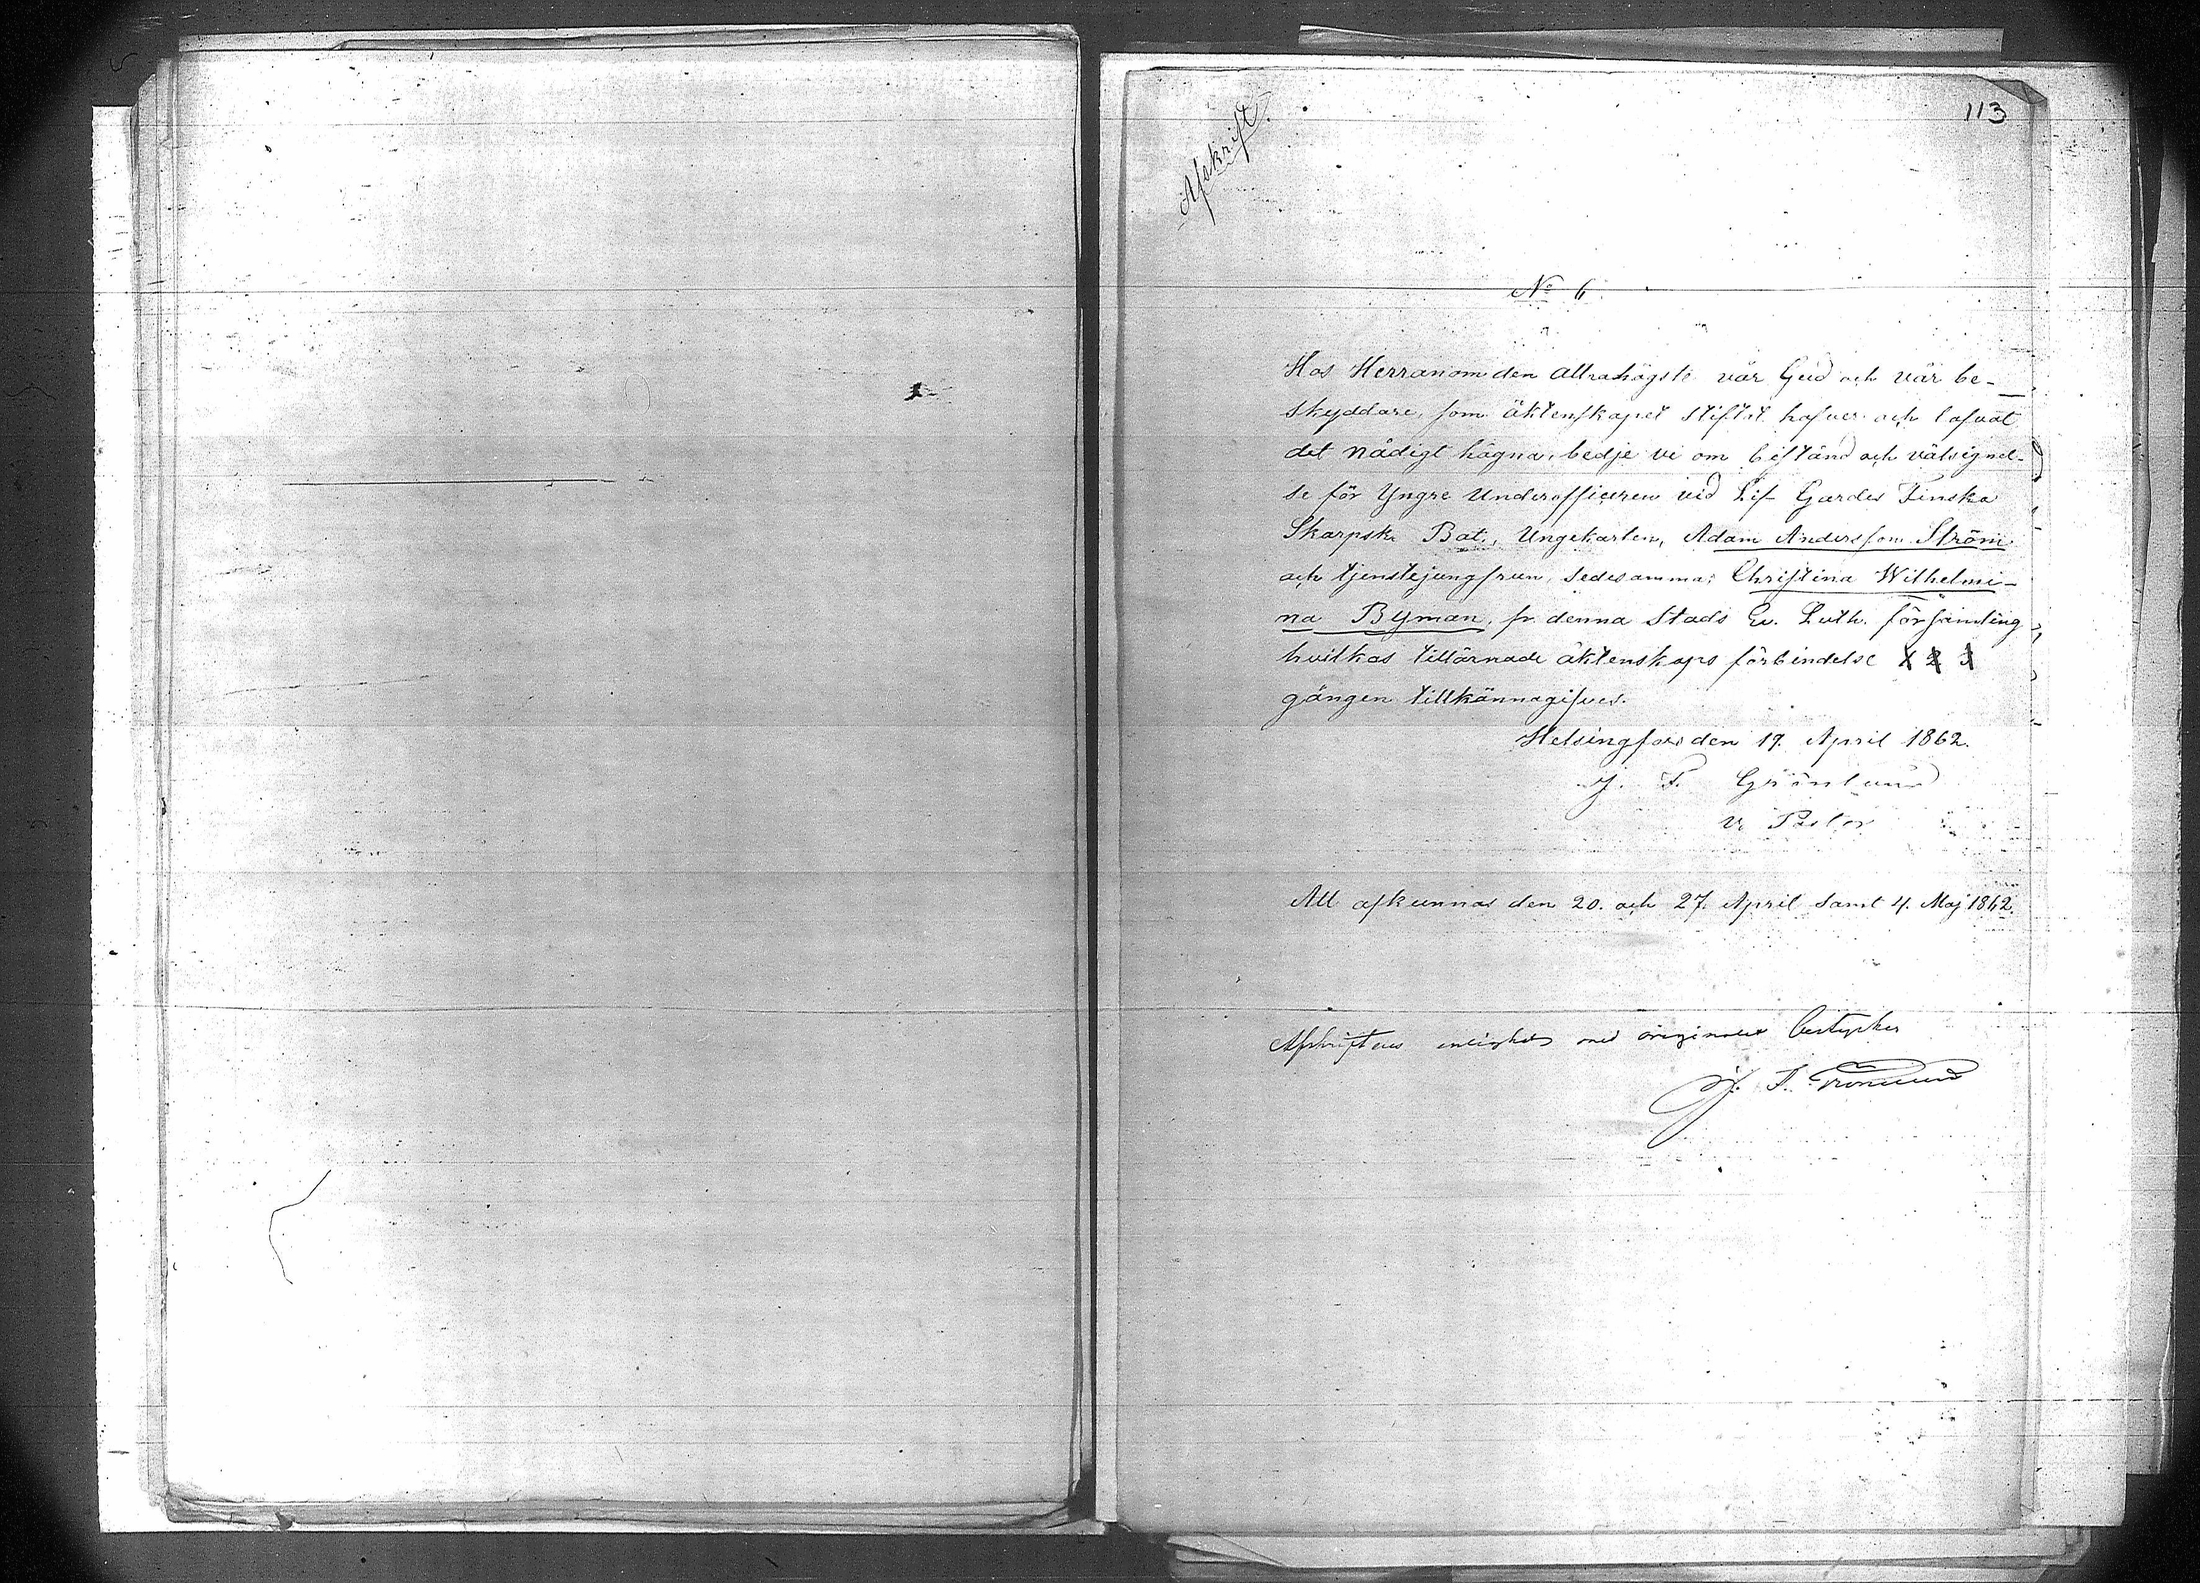 113
Afskrift.
No 6.
Hos Herranom den Allrahögste vår Gud och vår be-
skyddare, som äktenskapet stiftat hafver och lofvat
det nådigt hägna, bedje vi om bistånd och välsignel-
se för Yngre Underofficeren vid Lif Gardes Finska
Skarpsk. Bat., Ungekarlen, Adam Andersson Ström
och tjenstejungfrun, sedesamma; Christina Wilhelmi-
na Byman, fr. denna Stads Ev. Luth. församling,
hvilkas tillärnade äktenskaps förbindelse 1 2 3
gången tillkännagifves.
Helsingfors den 17. April 1862.
J. F. Grönlund
v. Pastor
Att afkunnas den 20. och 27. April samt 4. Maj 1862.
Afskriftens enlighet med originalet bestyrker
J. F. Grönlund